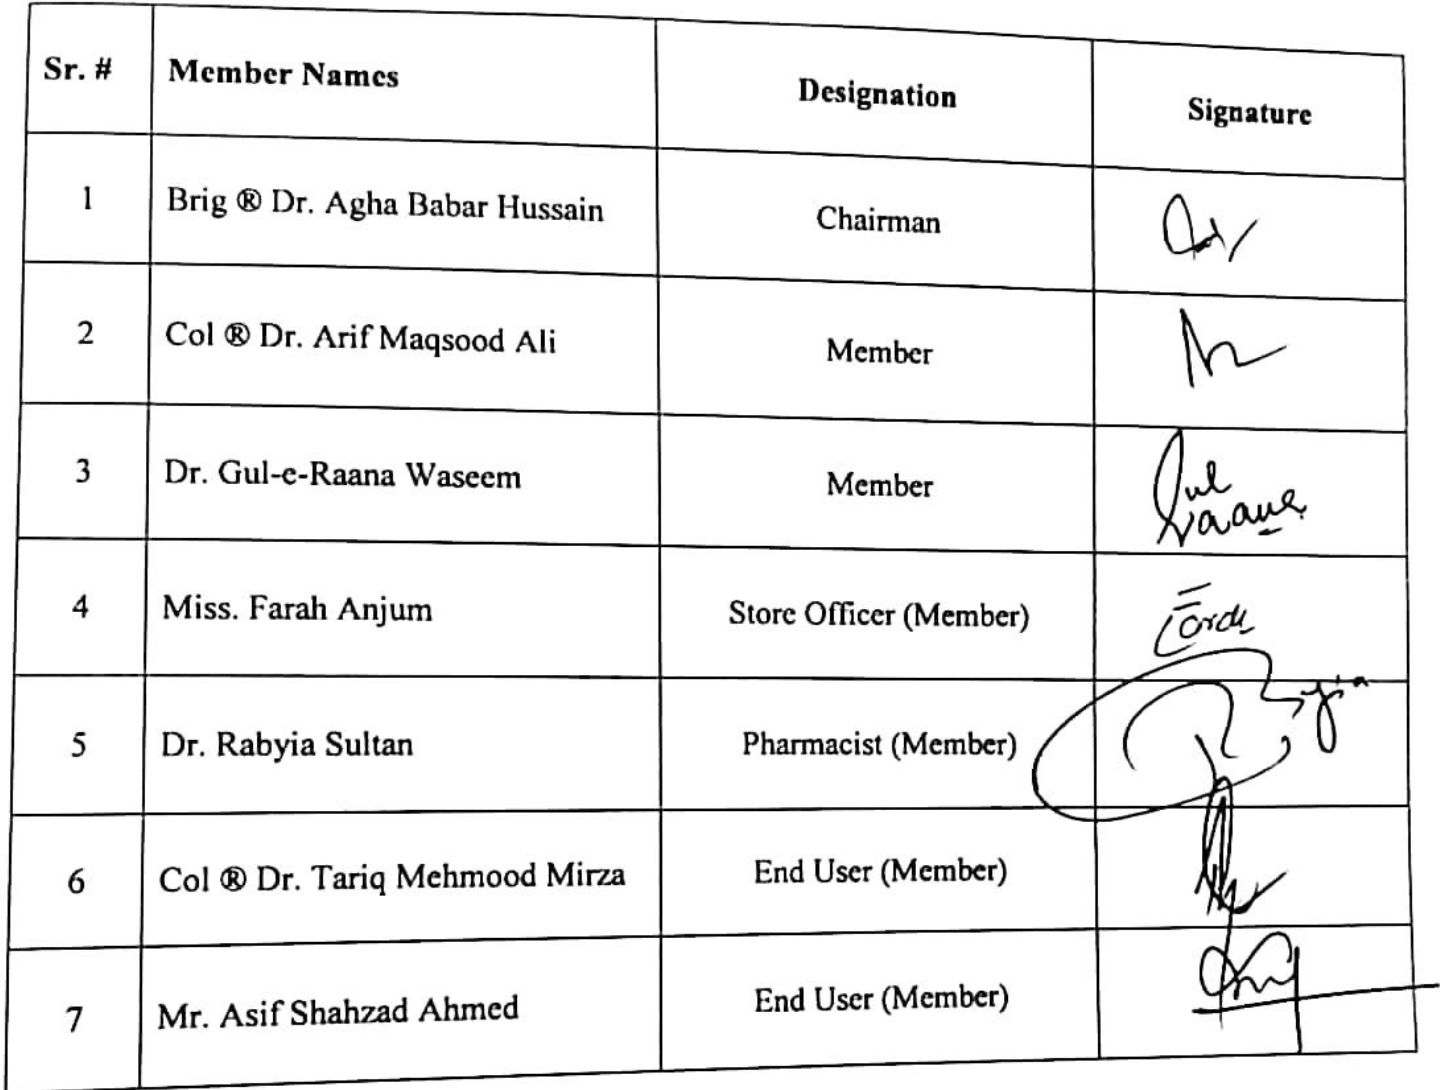 Sr. # Member Names Designation Signature
1 Brig ® Dr. Agha Babar Hussain Chairman
2 Col ® Dr. Arif Maqsood Ali Member
3 Dr. Gul-e-Raana Waseem Member Gul
Raana
4 Miss. Farah Anjum Store Officer (Member)
5 Dr. Rabyia Sultan Pharmacist (Member)
6 Col ® Dr. Tariq Mehmood Mirza End User (Member)
7 Mr. Asif Shahzad Ahmed End User (Member)